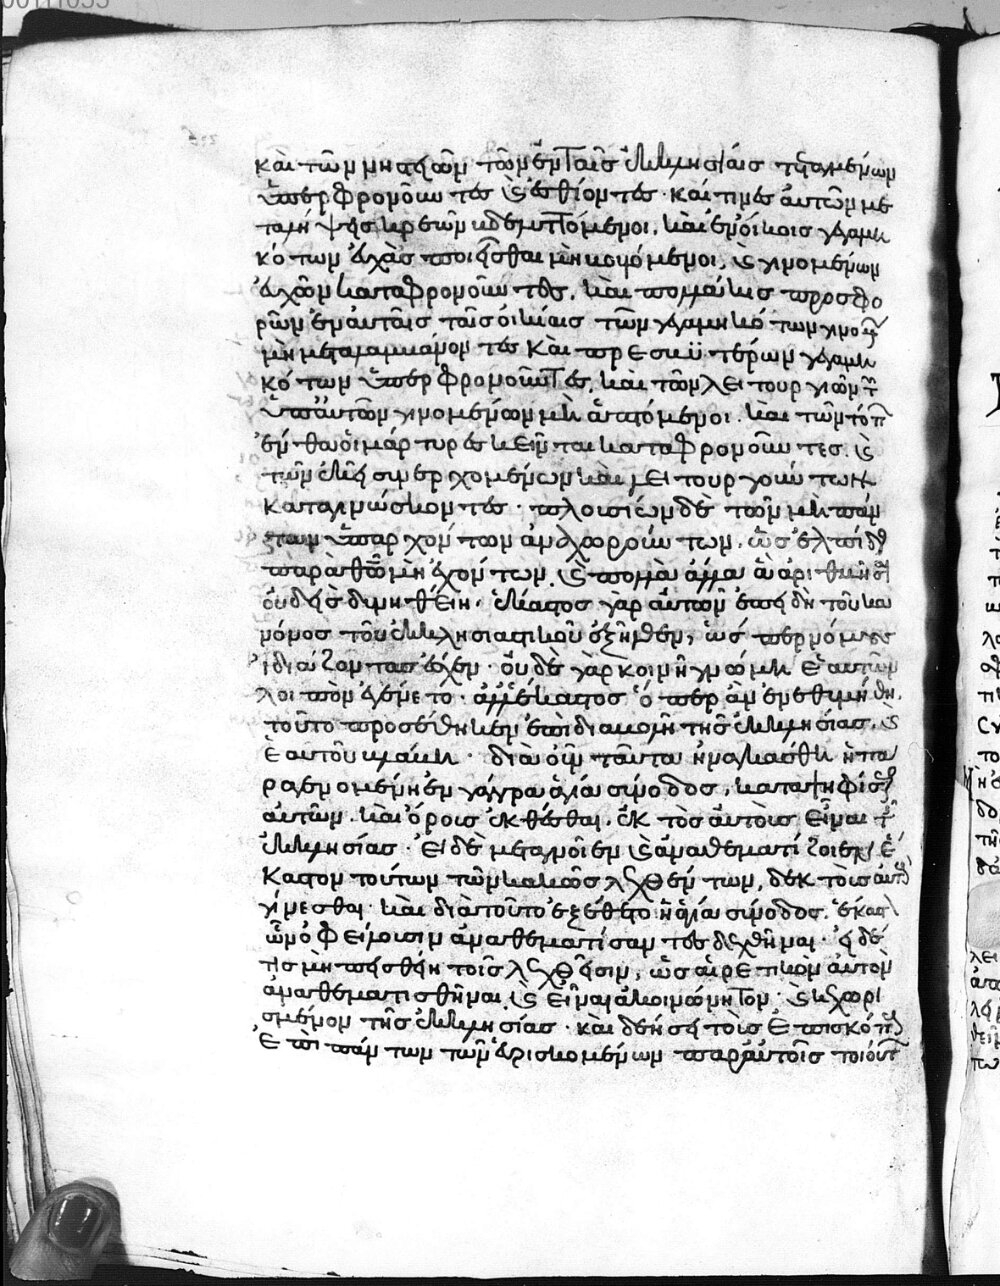 καὶ τῶν νηστειῶν τῶν ἐν ταῖς ἐκκλησίαις τεταγμένων
ὑπερφρονοῦντες καὶ ἐσθίοντες· καί τινες αὐτῶν με
ταλήψεις κρεῶν βδελυττόμενοι. καὶ ἐν οἴκοις γεγαμη
κότων εὐχὰς ποιεῖσθαι μὴ βουλόμενοι, καὶ γινομένων
εὐχῶν καταφρονοῦντες. καὶ πολλάκις προσφο
ρῶν ἐν αὐταῖς ταῖς οἰκίαις τῶν γεγαμηκότων γινομένων
μὴ μεταλαμβάνοντες καὶ πρεσβυτέρων γεγαμη
κότων ὑπερφρονοῦντες, καὶ τῶν λειτουργιῶν τῶν
ὑπ' αὐτῶν γινομένων μὴ ἁπτόμενοι. καὶ τῶν τόπων
ἐν οἷς μάρτυρες κεῖνται καταφρονοῦντες. καὶ
τῶν ἐκεῖ συνερχομένων καὶ λειτουργούντων
καταγινώσκοντες· πλουσίων δὲ τῶν μὴ πάν
των ὑπαρχόντων ἀναχωρούντων, ὡς ἐλπίδα
παρὰ θεῶ μὴ ἐχόντων. καὶ πολλὰ ἄλλα ἃ ἀριθμῆσαι
οὐδεὶς δυνηθείη· ἕκαστος γὰρ αὐτῶν ἐπειδὴ τοῦ κα
νόνος τοῦ ἐκκλησιαστικοῦ ἐξῆλθεν, ὥσπερ νόμους
ἰδιάζοντας ἔσχεν· οὐδὲ γὰρ κοινὴ γνώμη αὐτῶν
λοιπὸν ἐγένετο· ἀλλ' ἕκαστος ὅπερ ἂν ἐνεθυμήθη.
τοῦτο προσέθηκεν ἐπὶ διαβολῆ τῆς ἐκκλησίας. καὶ
ἑαυτοῦ βλάβη· διὰ οὖν ταῦτα ἠναγκάσθη ἡ πα
ραγενομένη ἐν γάγγρα ἁγία σύνοδος, καταψηφίσασθαι
αὐτῶν. καὶ ὅρους ἐκθέσθαι. ἐκτὸς αὐτοὺς εἶναι τῆς
ἐκκλησίας· εἰ δὲ μεταγνοῖεν καὶ ἀναθεματίζοιεν ἕ
καστον τούτων τῶν κακῶς λεχθέντων, δεκτοὺς αὐτοὺς
γίνεσθαι· καὶ διὰ τοῦτο ἐξέθετο ἡ ἁγία σύνοδος. ἕκαστον
ὧν ὀφείλουσιν ἀναθεματίσαντες δεχθῆναι· εἰ δέ
τις μὴ πεισθείη τοῖς λεχθεῖσιν, ὡς αἱρετικὸν αὐτὸν
ἀναθεματισθῆναι. καὶ εἶναι ἀκοινώνητον· καὶ κεχωρι
σμένον τῆς ἐκκλησίας· καὶ δεήσει τοὺς ἐπισκόπους
ἐπὶ πάντων τῶν εὑρισκομένων παρ' αὐτοῖς τοιοῦτον